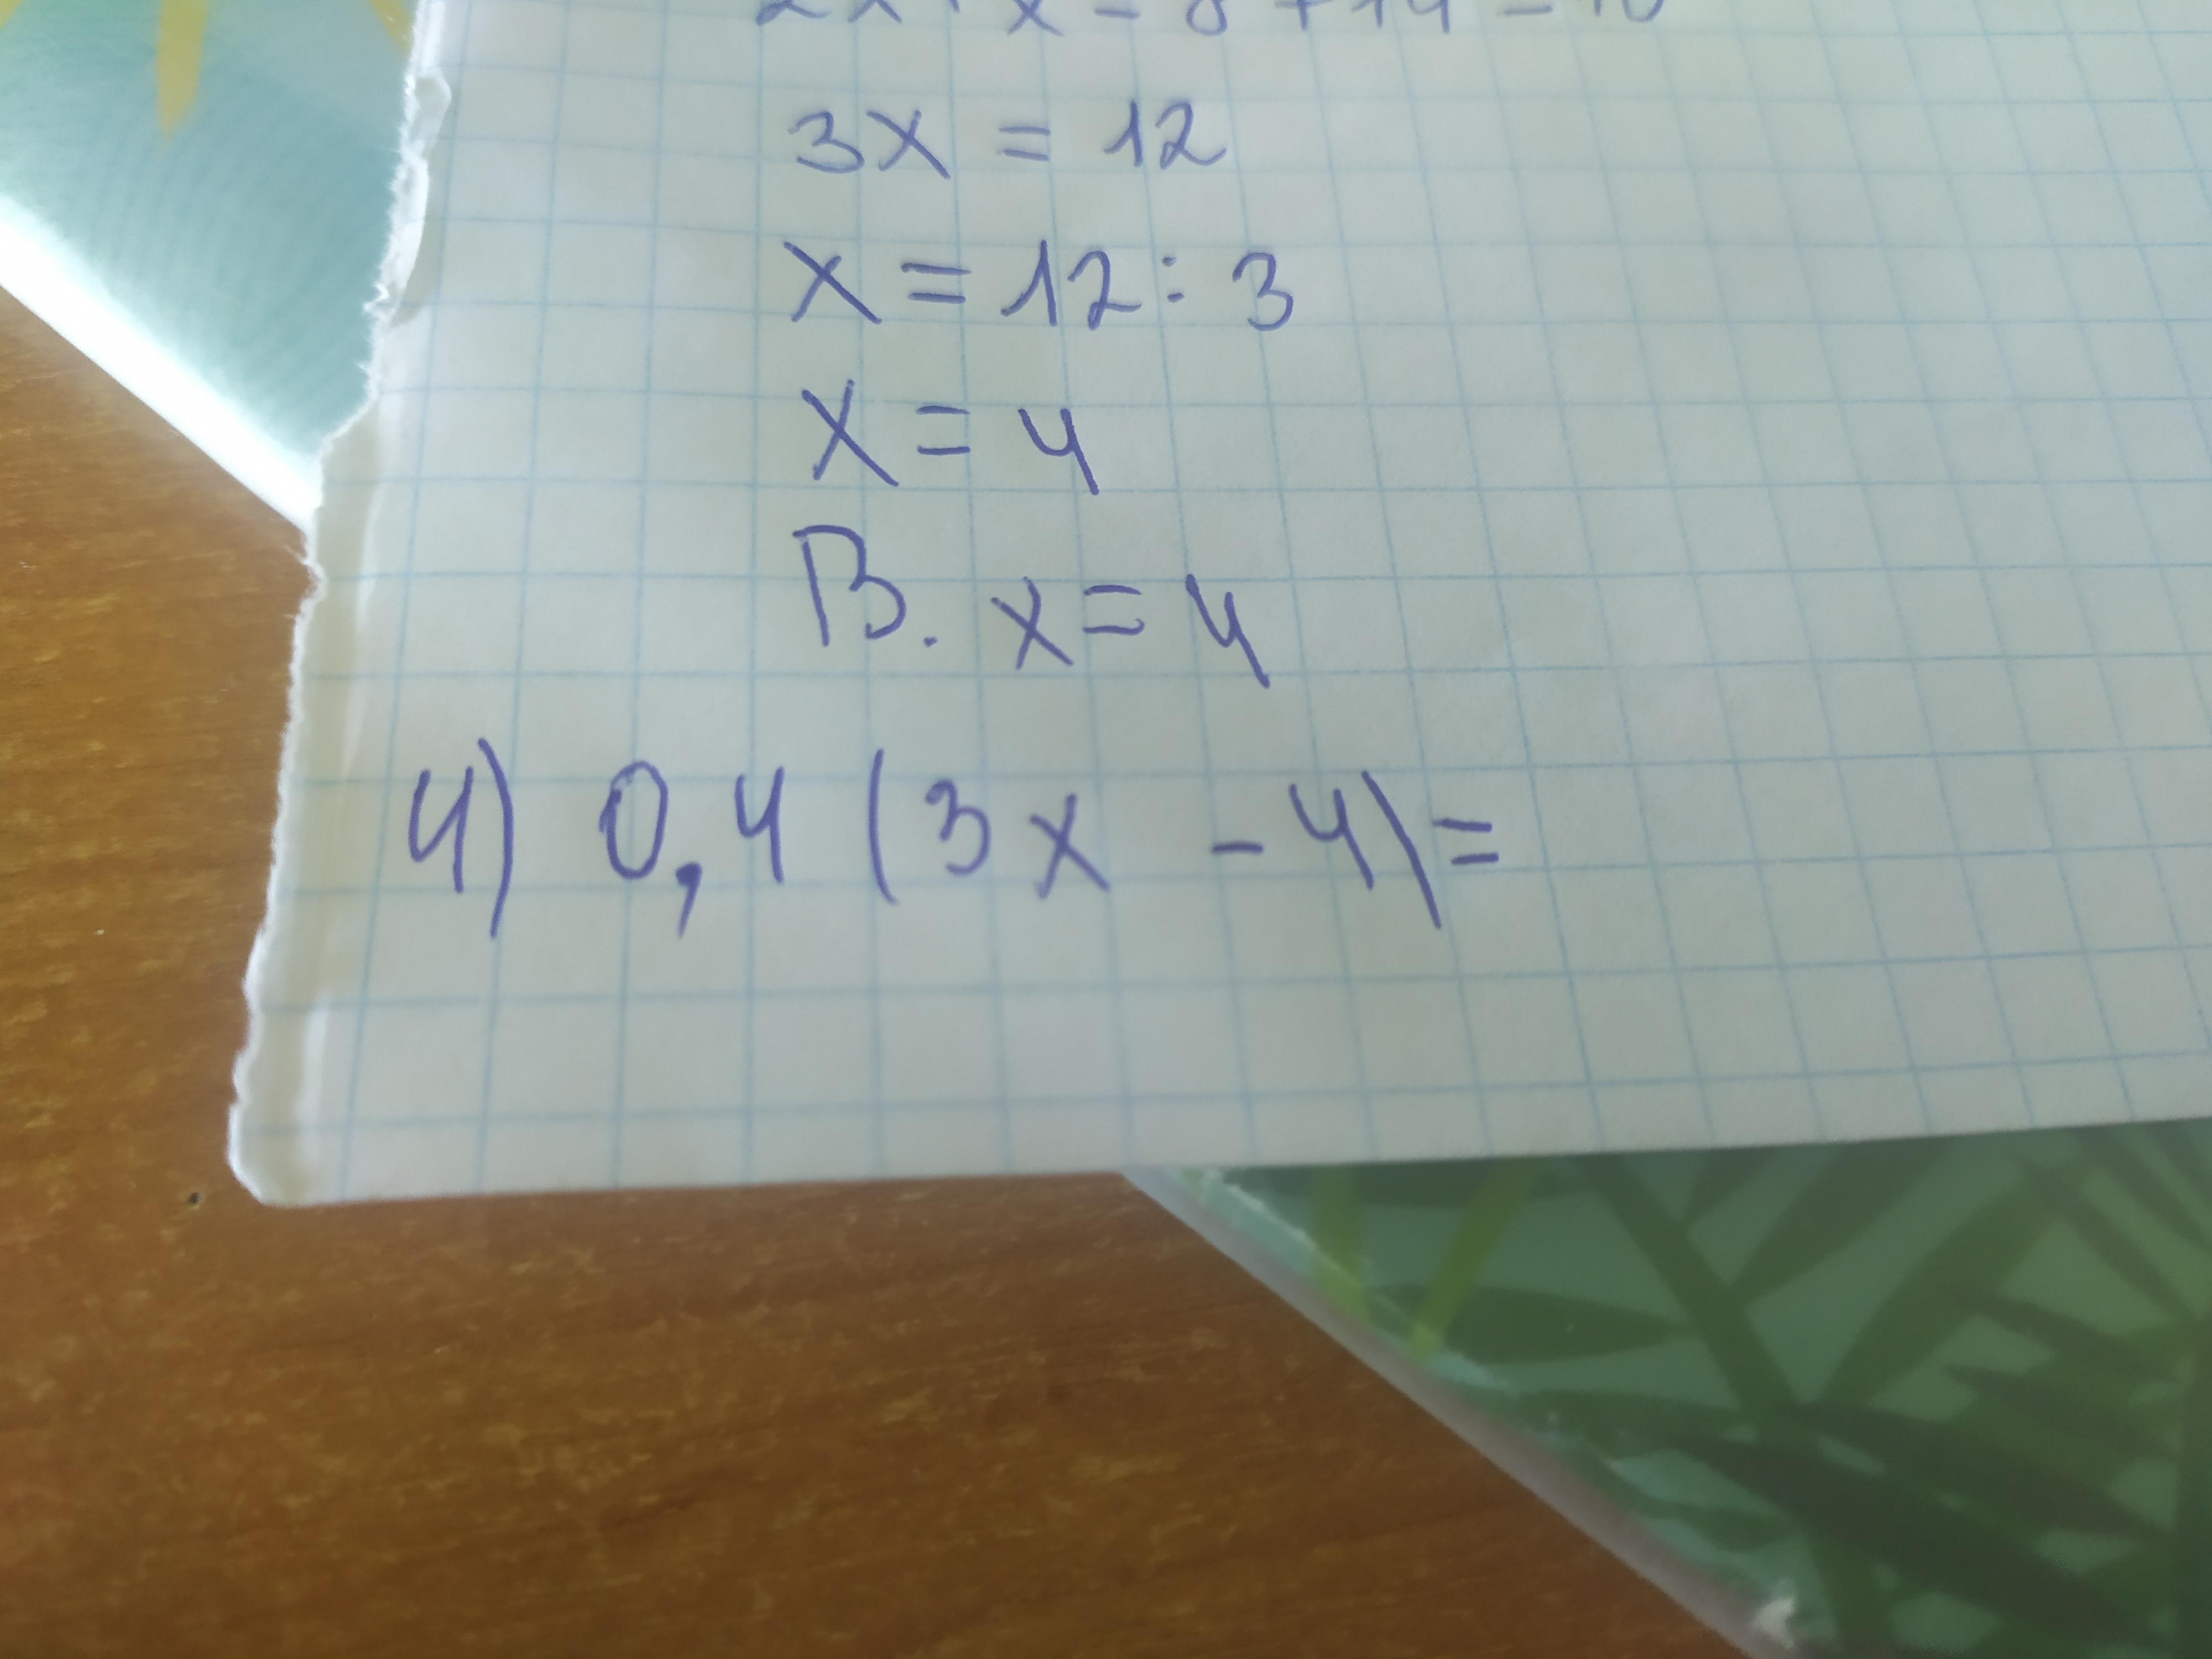 3x = 12
x = 12 : 3
x = 4
В. x = 4
4) 0,4 (3x - 4) =